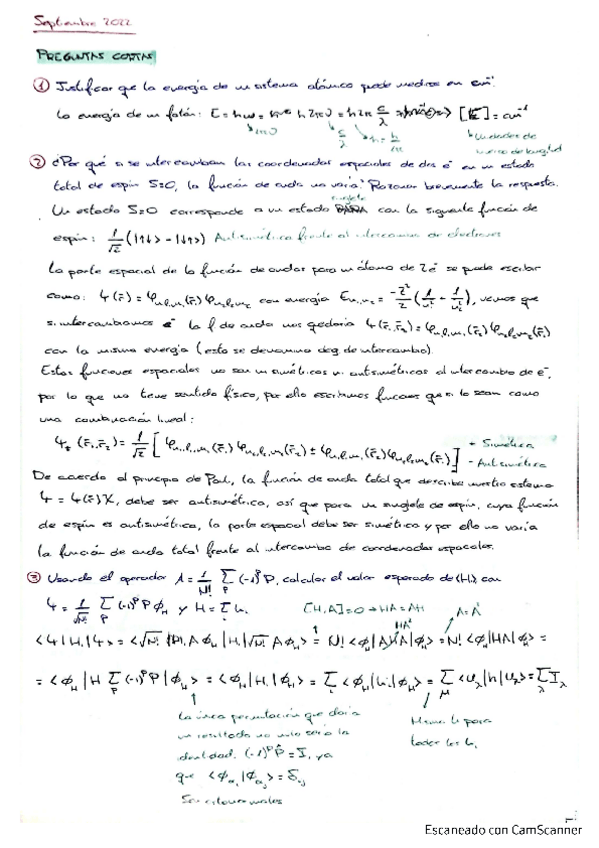 Septiembre 2022
PREGUNTAS CORTAS
① Justificar que la energía de un sistema atómico puede medirse en cm⁻¹
La energía de un fotón: E = ħω = ħ2πν = ħ2π c/λ [E] = cm⁻¹
2πν c/λ ħ = h/2π
Unidades de
número de longitud
② ¿Por qué si se intercambian las coordenadas espaciales de dos e⁻ en un estado
total de espín S=0, la función de onda no varía? Razonar brevemente la respuesta.
singlete
Un estado S=0 corresponde a un estado con la siguiente función de
espín: 1/√2 (|↑↓> - |↓↑>) Antisimétrica frente al intercambio de electrones
La parte espacial de la función de ondas para un átomo de 2e⁻ se puede escribir
como: Ψ(r̄) = φn₁l₁m₁(r̄₁) φn₂l₂m₂(r̄₂) con energía En₁n₂ = -Z²/2 (1/n₁² + 1/n₂²), vemos que
si intercambiamos e⁻ la f de onda nos quedaría Ψ(r̄₁,r̄₂) = φn₁l₁m₁(r̄₂) φn₂l₂m₂(r̄₁)
con la misma energía (esto se denomina deg de intercambio).
Estas funciones espaciales no son ni simétricas ni antisimétricas al intercambio de e⁻,
por lo que no tiene sentido físico, por ello escribimos funciones que si lo sean como
una combinación lineal:
Ψ±(r̄₁,r̄₂) = 1/√2 [φn₁l₁m₁(r̄₁) φn₂l₂m₂(r̄₂) ± φn₁l₁m₁(r̄₂) φn₂l₂m₂(r̄₁)] + Simétrica
- Antisimétrica
De acuerdo al principio de Pauli, la función de onda total que describe nuestro sistema
Ψ = Ψ(r̄)χ, debe ser antisimétrica, así que para un singlete de espín, cuya función
de espín es antisimétrica, la parte espacial debe ser simétrica y por ello no varía
la función de onda total frente al intercambio de coordenadas espaciales.
③ Usando el operador A = 1/N! Σ_P (-1)^P P, calcular el valor esperado de <H₁> con
Ψ = 1/√N! Σ_P (-1)^P P φ_H y H = Σ hᵢ [H,A]=0 → HA = AH A = A²
<Ψ|H₁|Ψ> = <√N! A φ_H|H|√N! A φ_H> = N! <φ_H|AHA|φ_H> = N! <φ_H|HA|φ_H> =
= <φ_H|H Σ_P (-1)^P P|φ_H> = <φ_H|H₁|φ_H> = Σᵢ <φ_H|hᵢ|φ_H> = Σ_λ <u_λ|h|u_λ> = Σ_λ I_λ
La única permutación que daría
un resultado no nulo sería la
identidad, (-1)^P P = I, ya
que <φαᵢ|φαⱼ> = δᵢⱼ
Son ortonormales
Mismo h para
todos los hᵢ
Escaneado con CamScanner